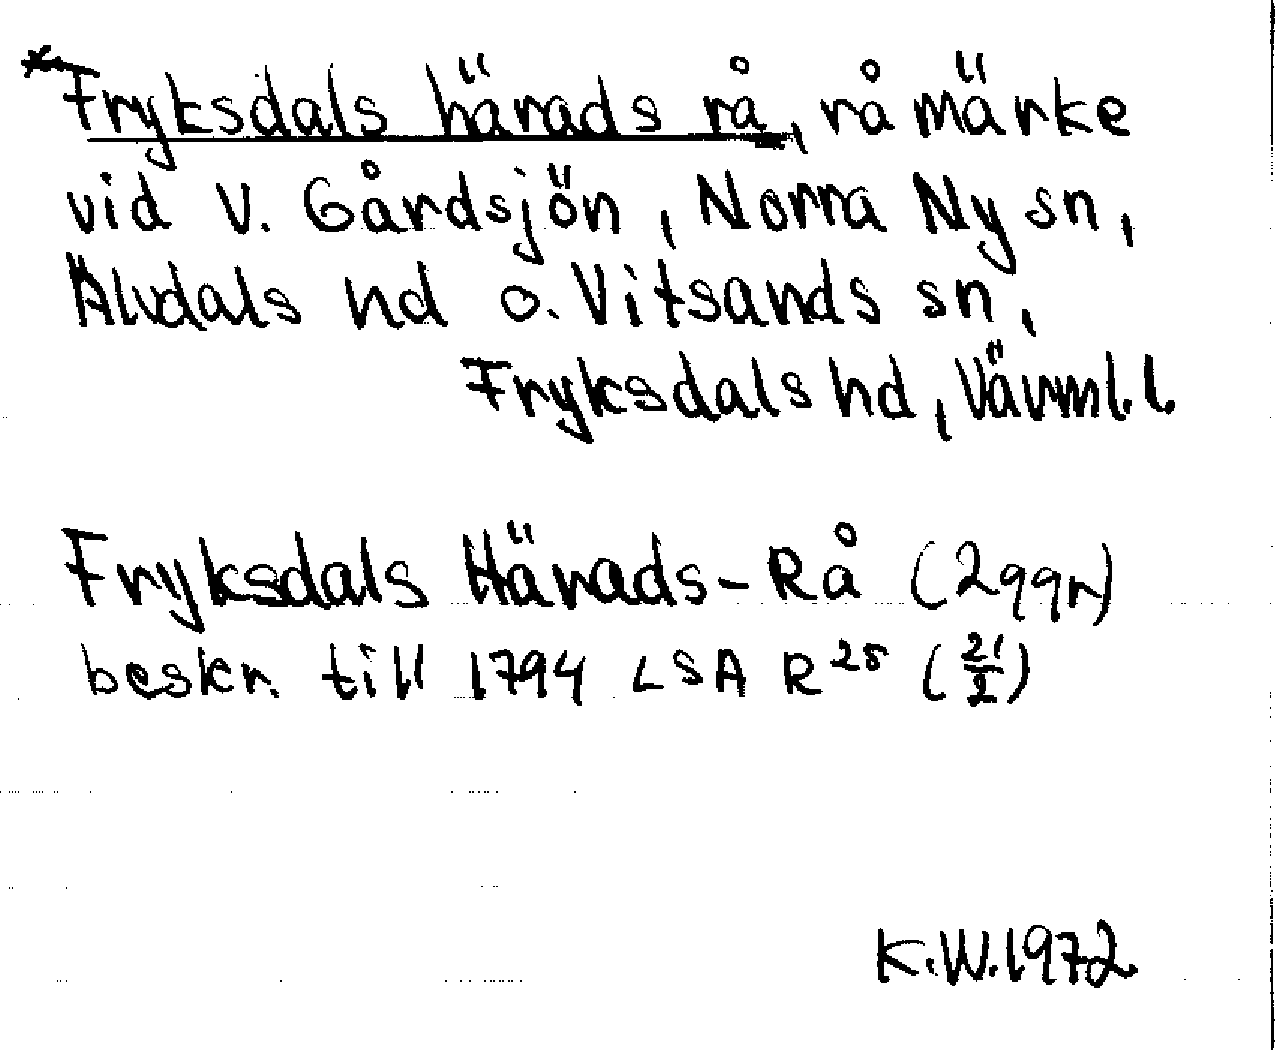 *Fryksdals härads rå, råmärke
vid V. Gårdsjön, Norra Ny sn,
Älvdals hd o. Vitsands sn,
Fryksdals hd, Värml. l.
Fryksdals Härads-Rå (299r)
beskr. till 1794 LSA R 25 (21/2)
K.W. 1972